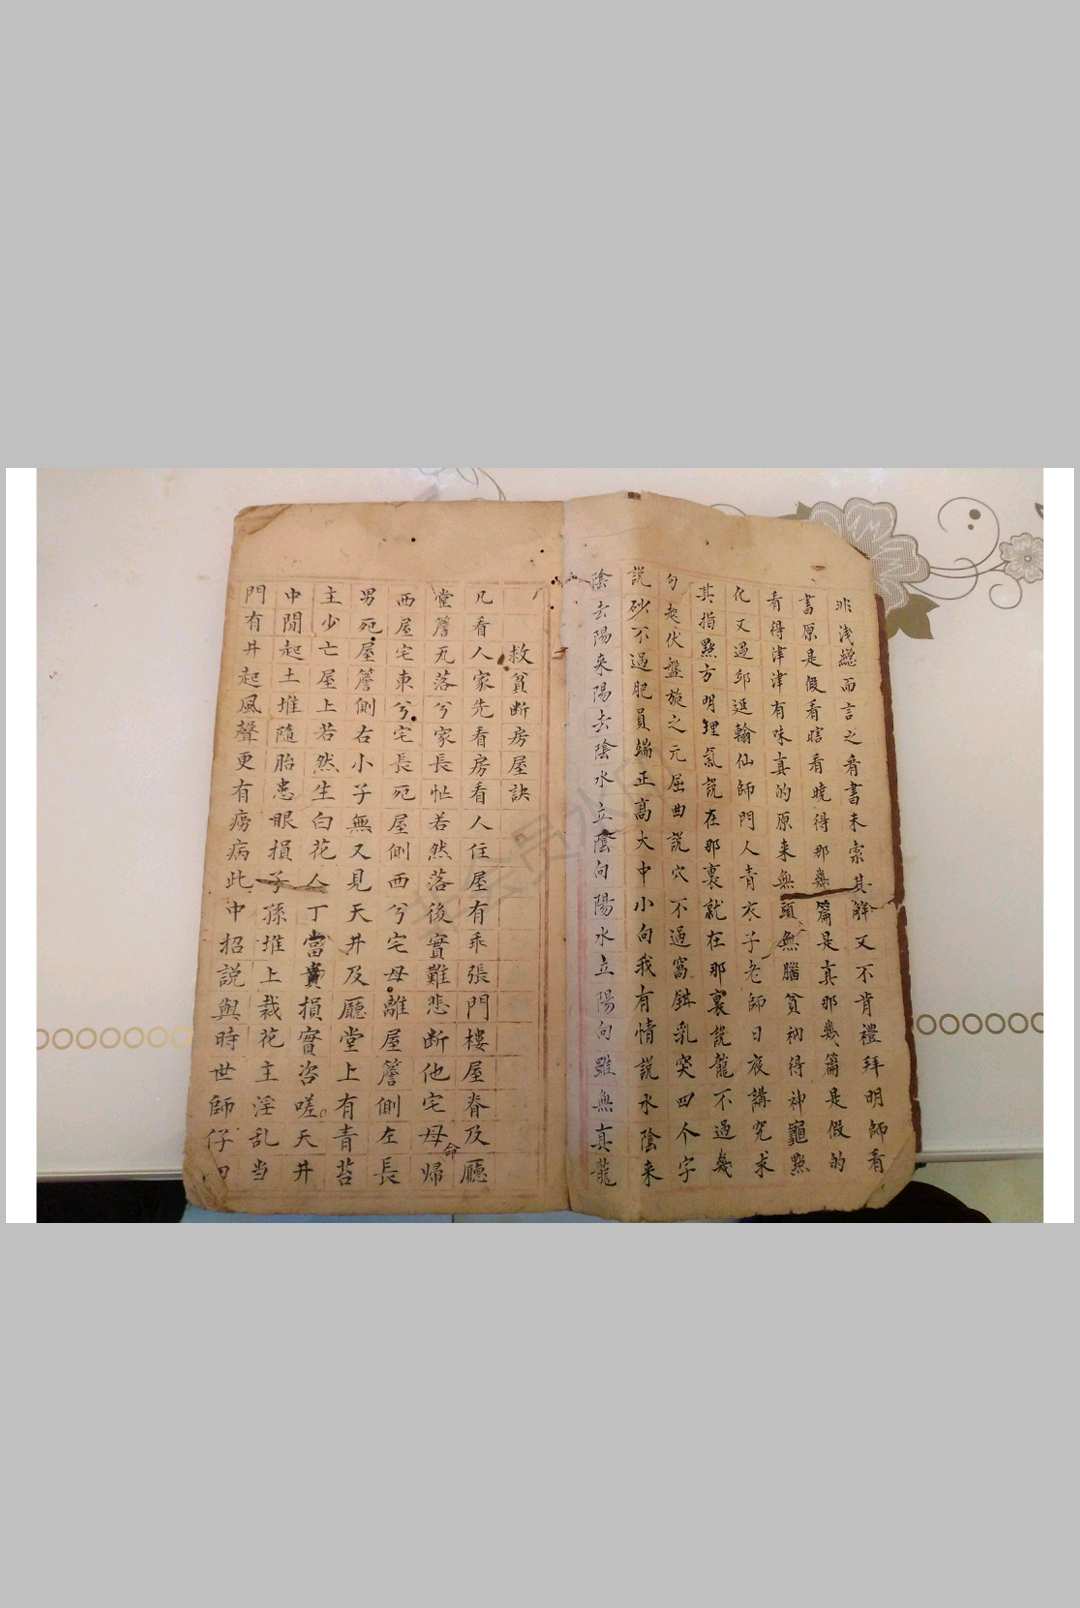 非淺總而言之看書未窮其解又不肯禮拜明師看
書原是假看瞎看曉得那幾篇是真那幾篇是假的
看得津津有味真的原来無頭無腦貧衲得神龜點
化又過邱延翰仙師門人青衣子老師日夜講究求
其指點方明理氣説在那裏就在那裏説龍不過幾
句起伏盤旋之元屈曲説穴不過窩鉢乳突四个字
説砂不過肥員端正高大中小向我有情説水陰来
陰去陽来陽去陰水立陰向陽水立陽向雖無真龍
救貧断房屋訣
凡看人家先看房看人住屋有乖張門樓屋脊及廳
堂簷兀落兮家長怔若然落後實難悲断他宅母命歸
西屋宅東兮宅長死屋側西兮宅母離屋簷側左長
男死屋簷側右小子無又見天井及廳堂上有青苔
主少亡屋上若然生白花人丁當賣損實咨嗟天井
中間起土堆隨胎患眼損子孫堆上栽花主淫乱当
門有井起風聲更有癆病此中招説與時世師仔